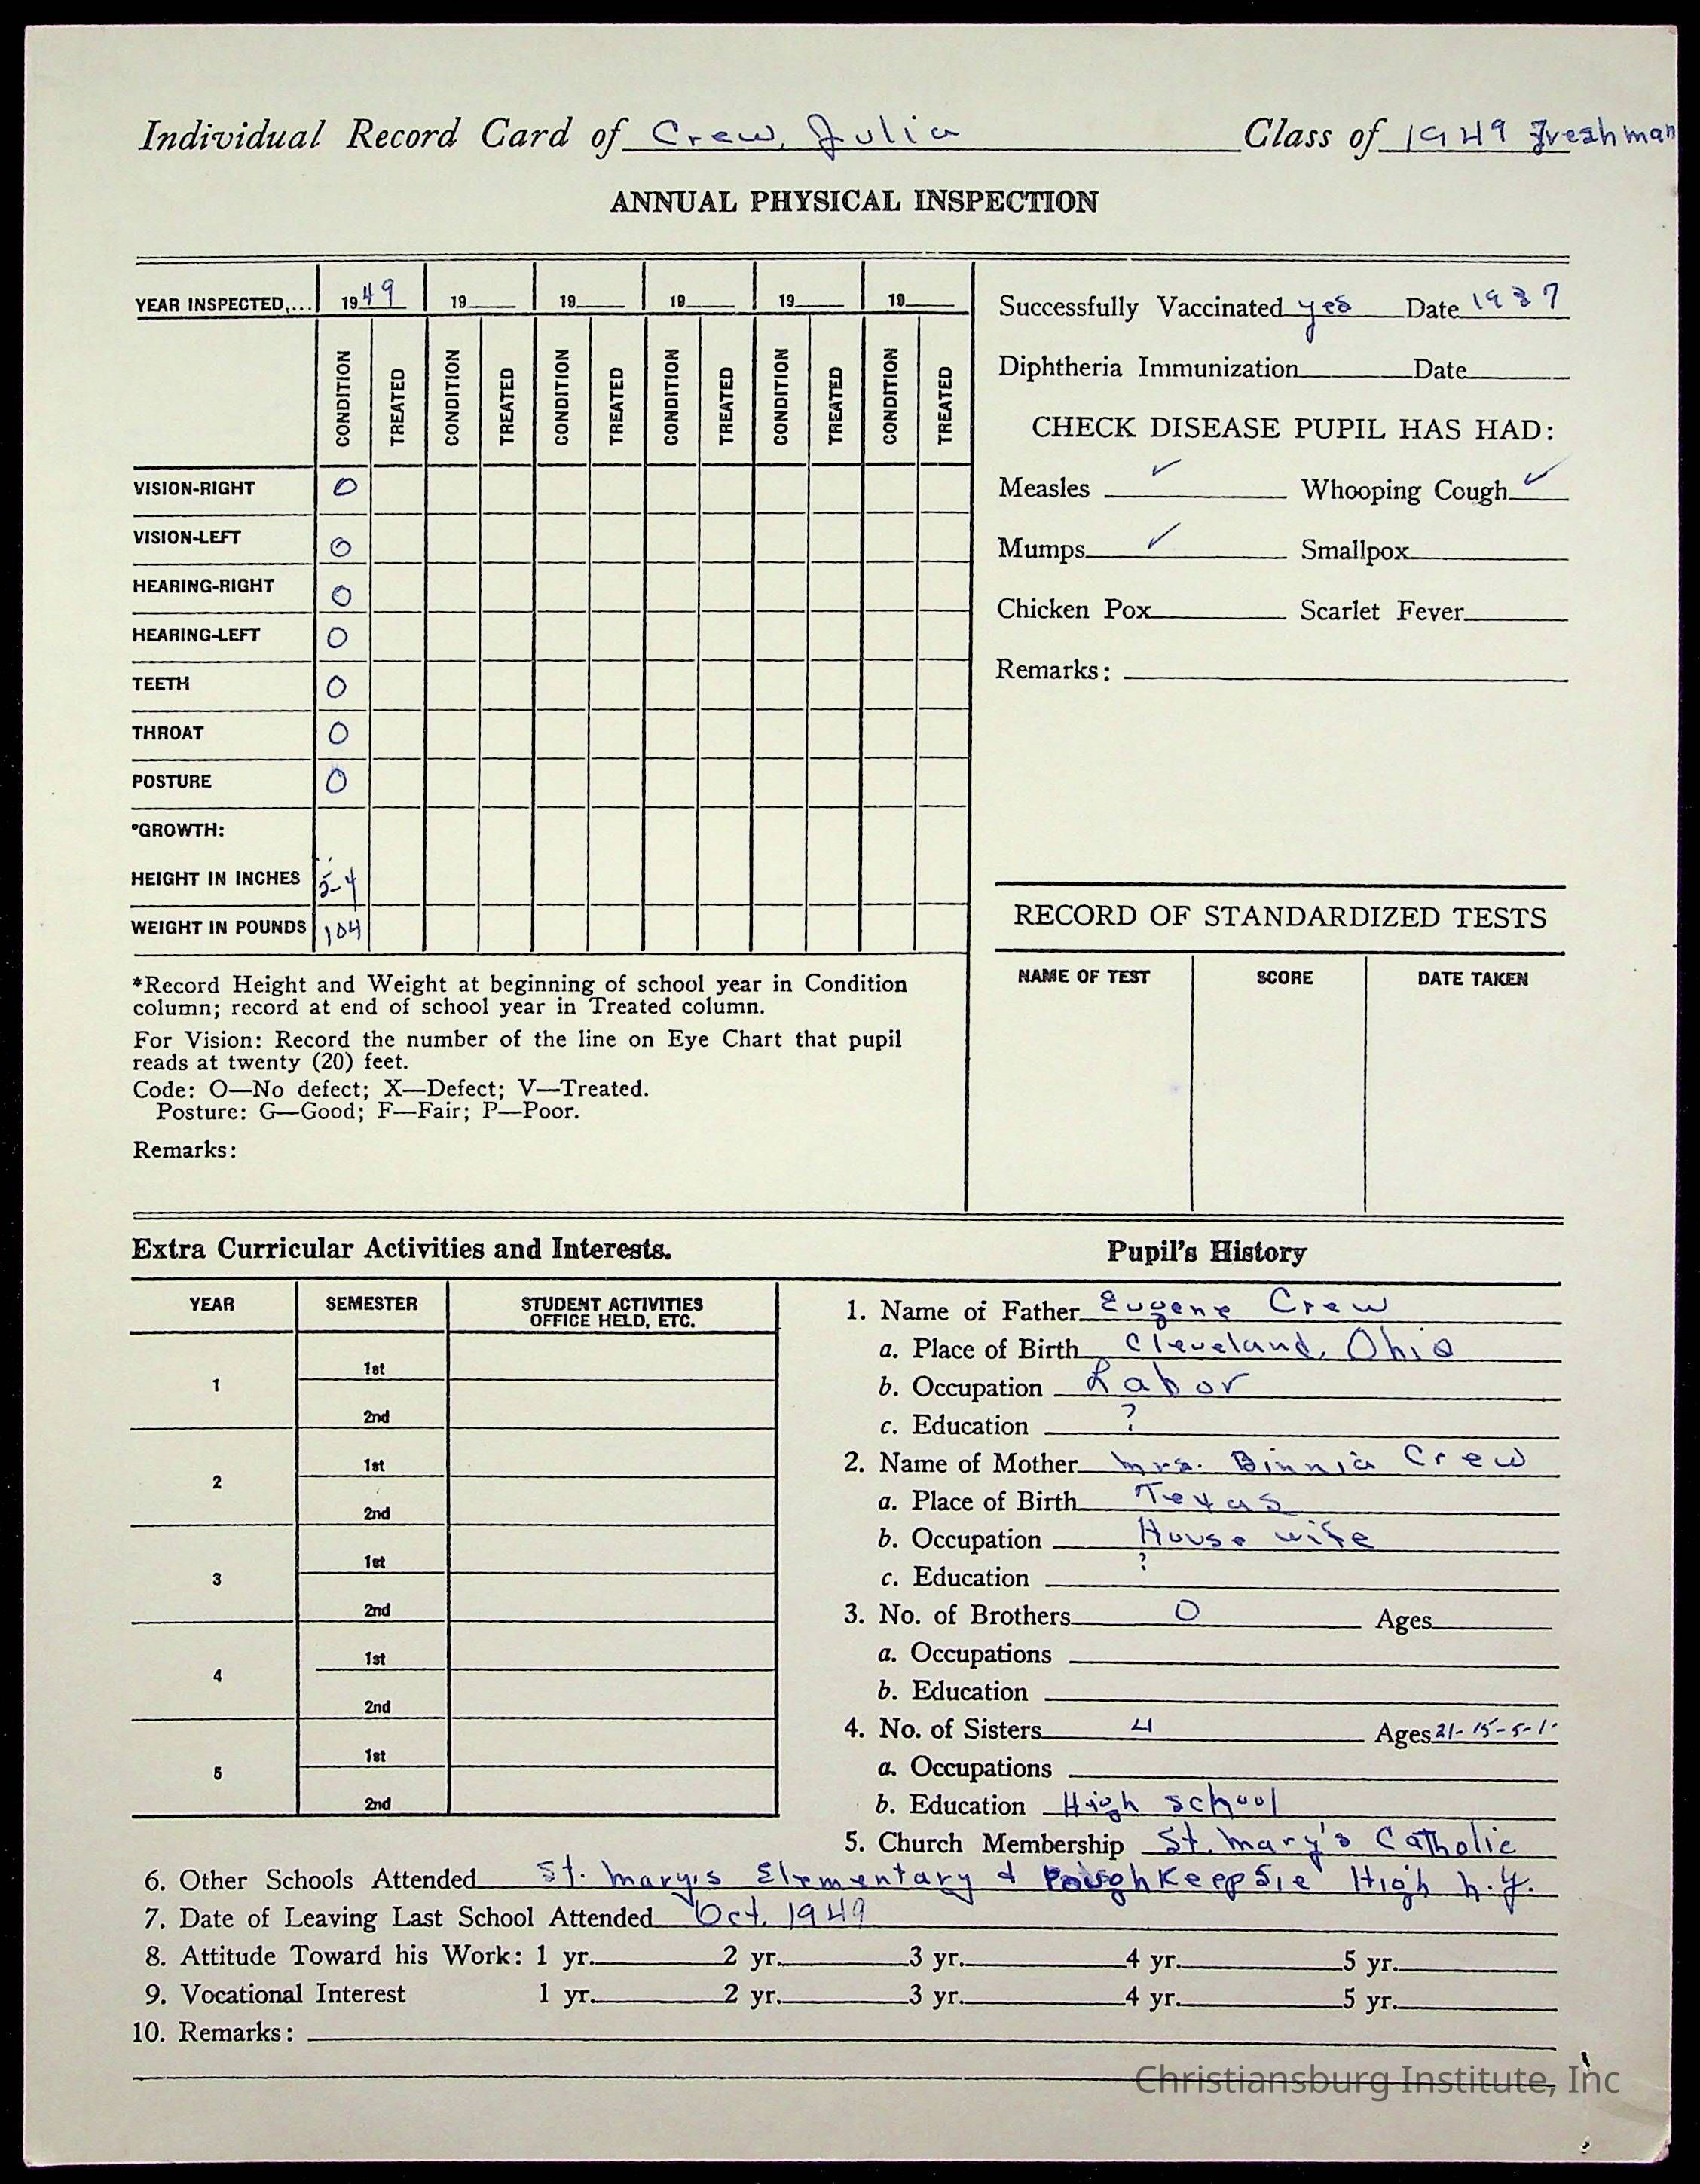 Individual Record Card of Crew, Julia Class of 1949 Freshman
ANNUAL PHYSICAL INSPECTION
YEAR INSPECTED,... 1949 19 19 19 19 19
CONDITION TREATED CONDITION TREATED CONDITION TREATED CONDITION TREATED CONDITION TREATED CONDITION TREATED
VISION-RIGHT O
VISION-LEFT O
HEARING-RIGHT O
HEARING-LEFT O
TEETH O
THROAT O
POSTURE O
*GROWTH:
HEIGHT IN INCHES 5-4
WEIGHT IN POUNDS 104
*Record Height and Weight at beginning of school year in Condition
column; record at end of school year in Treated column.
For Vision: Record the number of the line on Eye Chart that pupil
reads at twenty (20) feet.
Code: O—No defect; X—Defect; V—Treated.
Posture: G—Good; F—Fair; P—Poor.
Remarks:
Successfully Vaccinated yes Date 1937
Diphtheria Immunization Date
CHECK DISEASE PUPIL HAS HAD:
Measles ✓ Whooping Cough ✓
Mumps ✓ Smallpox
Chicken Pox Scarlet Fever
Remarks:
RECORD OF STANDARDIZED TESTS
NAME OF TEST SCORE DATE TAKEN
Extra Curricular Activities and Interests.
YEAR SEMESTER STUDENT ACTIVITIES
OFFICE HELD, ETC.
1 1st
2nd
2 1st
2nd
3 1st
2nd
4 1st
2nd
5 1st
2nd
Pupil's History
1. Name of Father Eugene Crew
a. Place of Birth Cleveland, Ohio
b. Occupation Labor
c. Education ?
2. Name of Mother Mrs. Binnia Crew
a. Place of Birth Texas
b. Occupation House wife
c. Education ?
3. No. of Brothers O Ages
a. Occupations
b. Education
4. No. of Sisters 4 Ages 21-15-5-1
a. Occupations
b. Education High school
5. Church Membership St. Mary's Catholic
6. Other Schools Attended St. Mary's Elementary & Poughkeepsie High N.Y.
7. Date of Leaving Last School Attended Oct. 1949
8. Attitude Toward his Work: 1 yr. 2 yr. 3 yr. 4 yr. 5 yr.
9. Vocational Interest 1 yr. 2 yr. 3 yr. 4 yr. 5 yr.
10. Remarks:
Christiansburg Institute, Inc